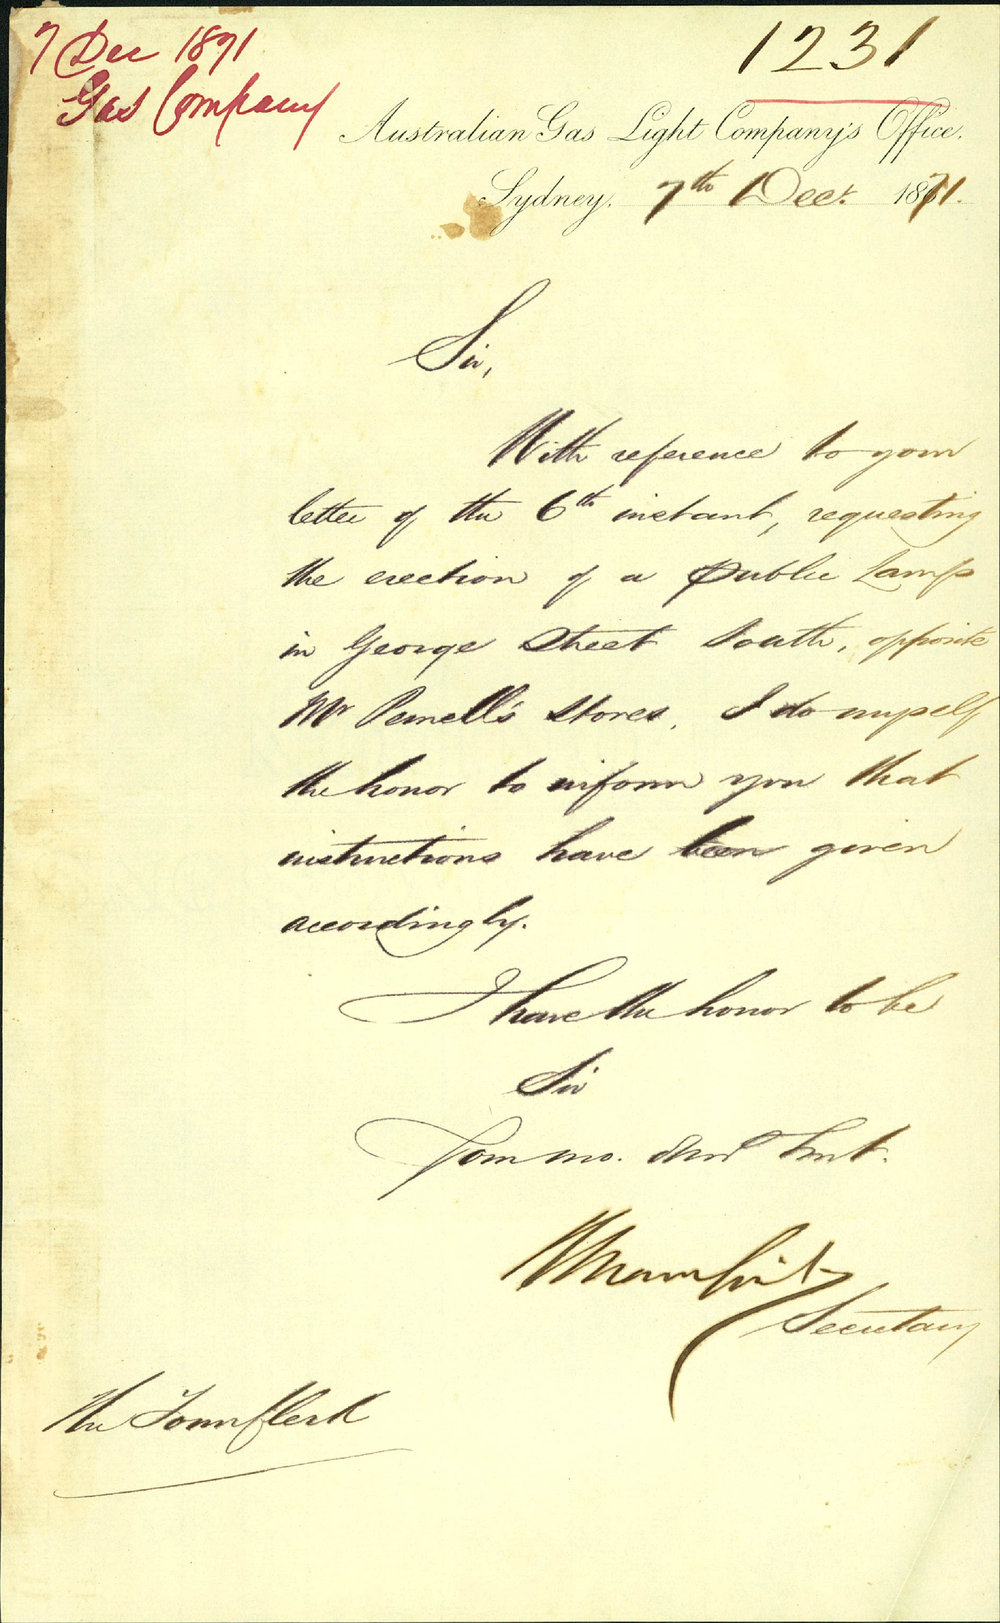 7 Dec 1871
Gas Company
1231
Australian Gas Light Company's Office.
Sydney. 7th Dec. 1871.
Sir,
With reference to your
letter of the 6th instant, requesting
the erection of a public Lamp
in George Street South, opposite
Mr Pemell's Stores, I do myself
the honor to inform you that
instructions have been given
accordingly.
I have the honor to be
Sir
Your mo. Obed
Secretary
The Town Clerk